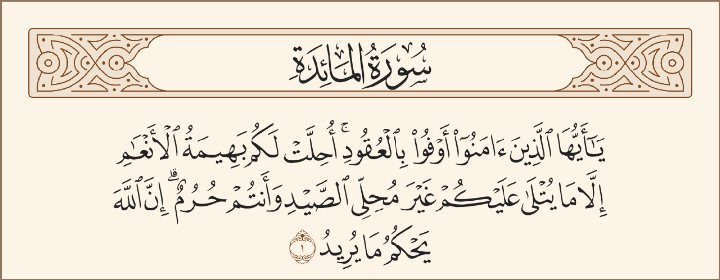 سُورَةُ المَائِدَةِ
يَٰٓأَيُّهَا ٱلَّذِينَ ءَامَنُوٓا۟ أَوْفُوا۟ بِٱلْعُقُودِ ۚ أُحِلَّتْ لَكُم بَهِيمَةُ ٱلْأَنْعَٰمِ
إِلَّا مَا يُتْلَىٰ عَلَيْكُمْ غَيْرَ مُحِلِّى ٱلصَّيْدِ وَأَنتُمْ حُرُمٌ ۗ إِنَّ ٱللَّهَ
يَحْكُمُ مَا يُرِيدُ ١